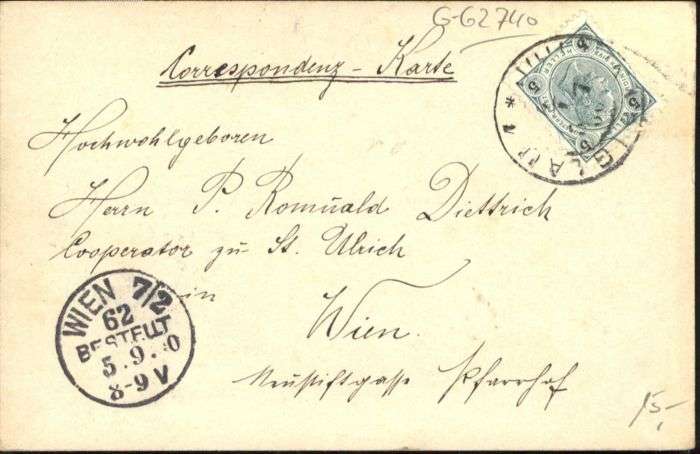 G-G2740
Correspondenz-Karte
Hochwohlgeboren
Herrn P. Romuald Diettrich
Cooperator zu St. Ulrich
in
Wien.
Neustiftgasse Pfarrhof
WIEN 7/2
62
BESTELLT
5.9.0
8-9V
IGLAU 1 *
5
15,-